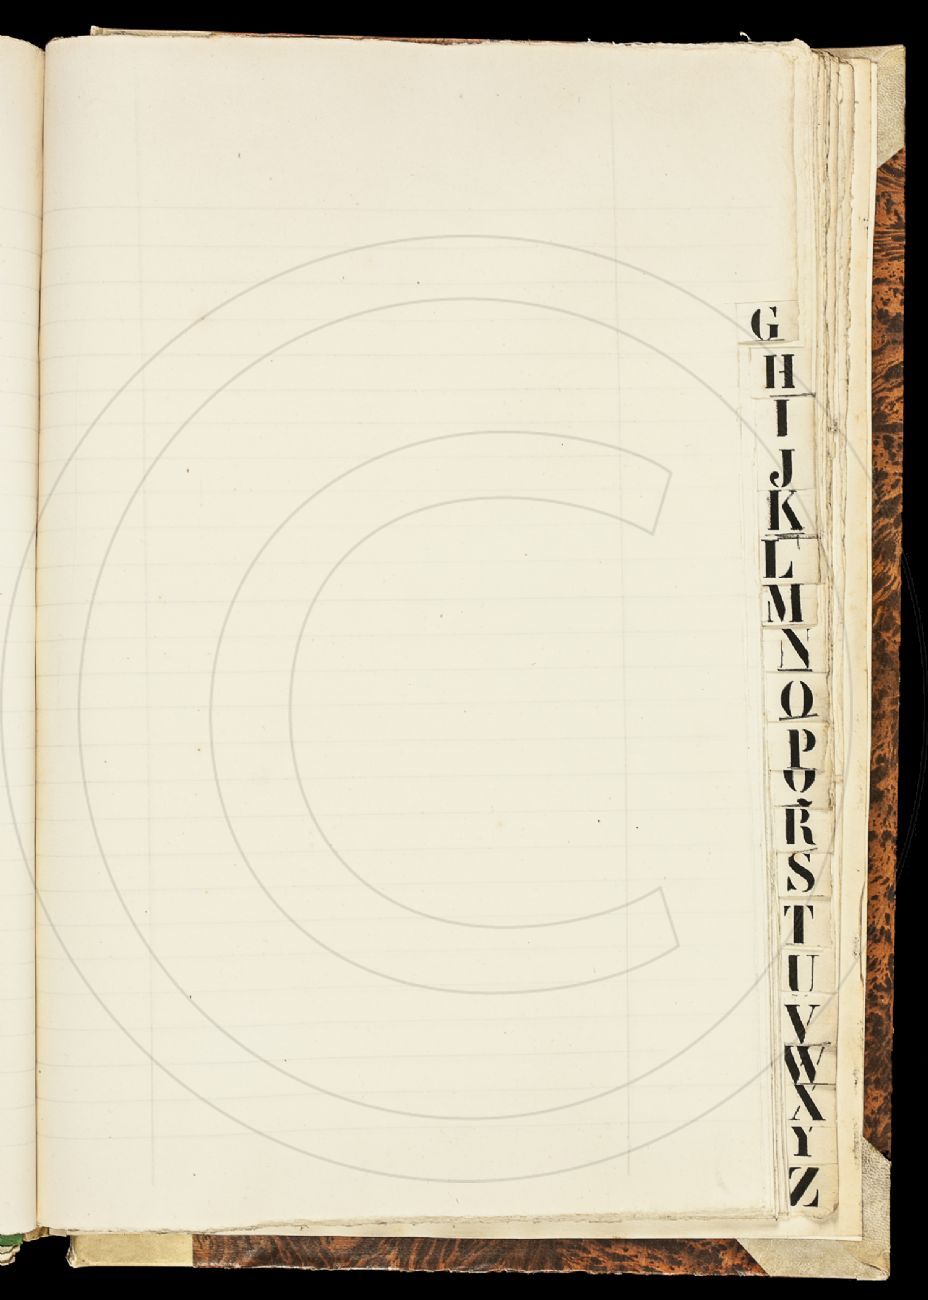 G
H
I
J
K
L
M
N
O
P
Q
R
S
T
U
V
W
X
Y
Z